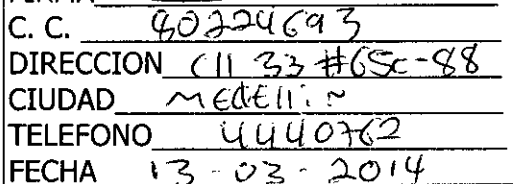 C. C. 80224693
DIRECCION Cll 33 #65c-88
CIUDAD MEdEllin
TELEFONO 4440762
FECHA 13-03-2014